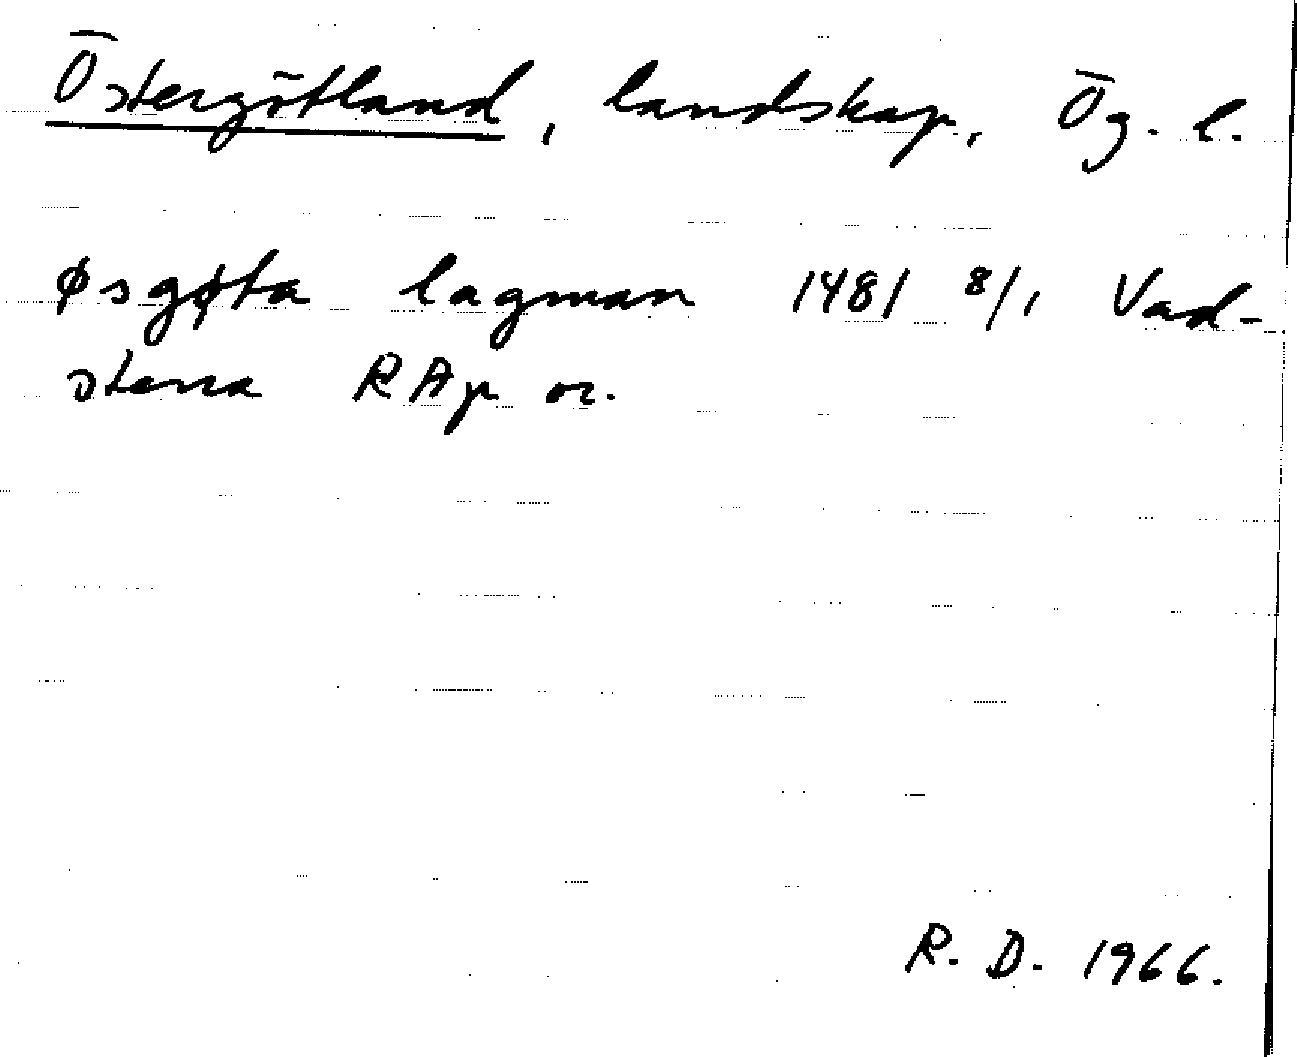 Östergötland, landskap, Ög. l.
Øsgøta lagman 1481 8/1 Vad-
stena RAp or.
R. D. 1966.